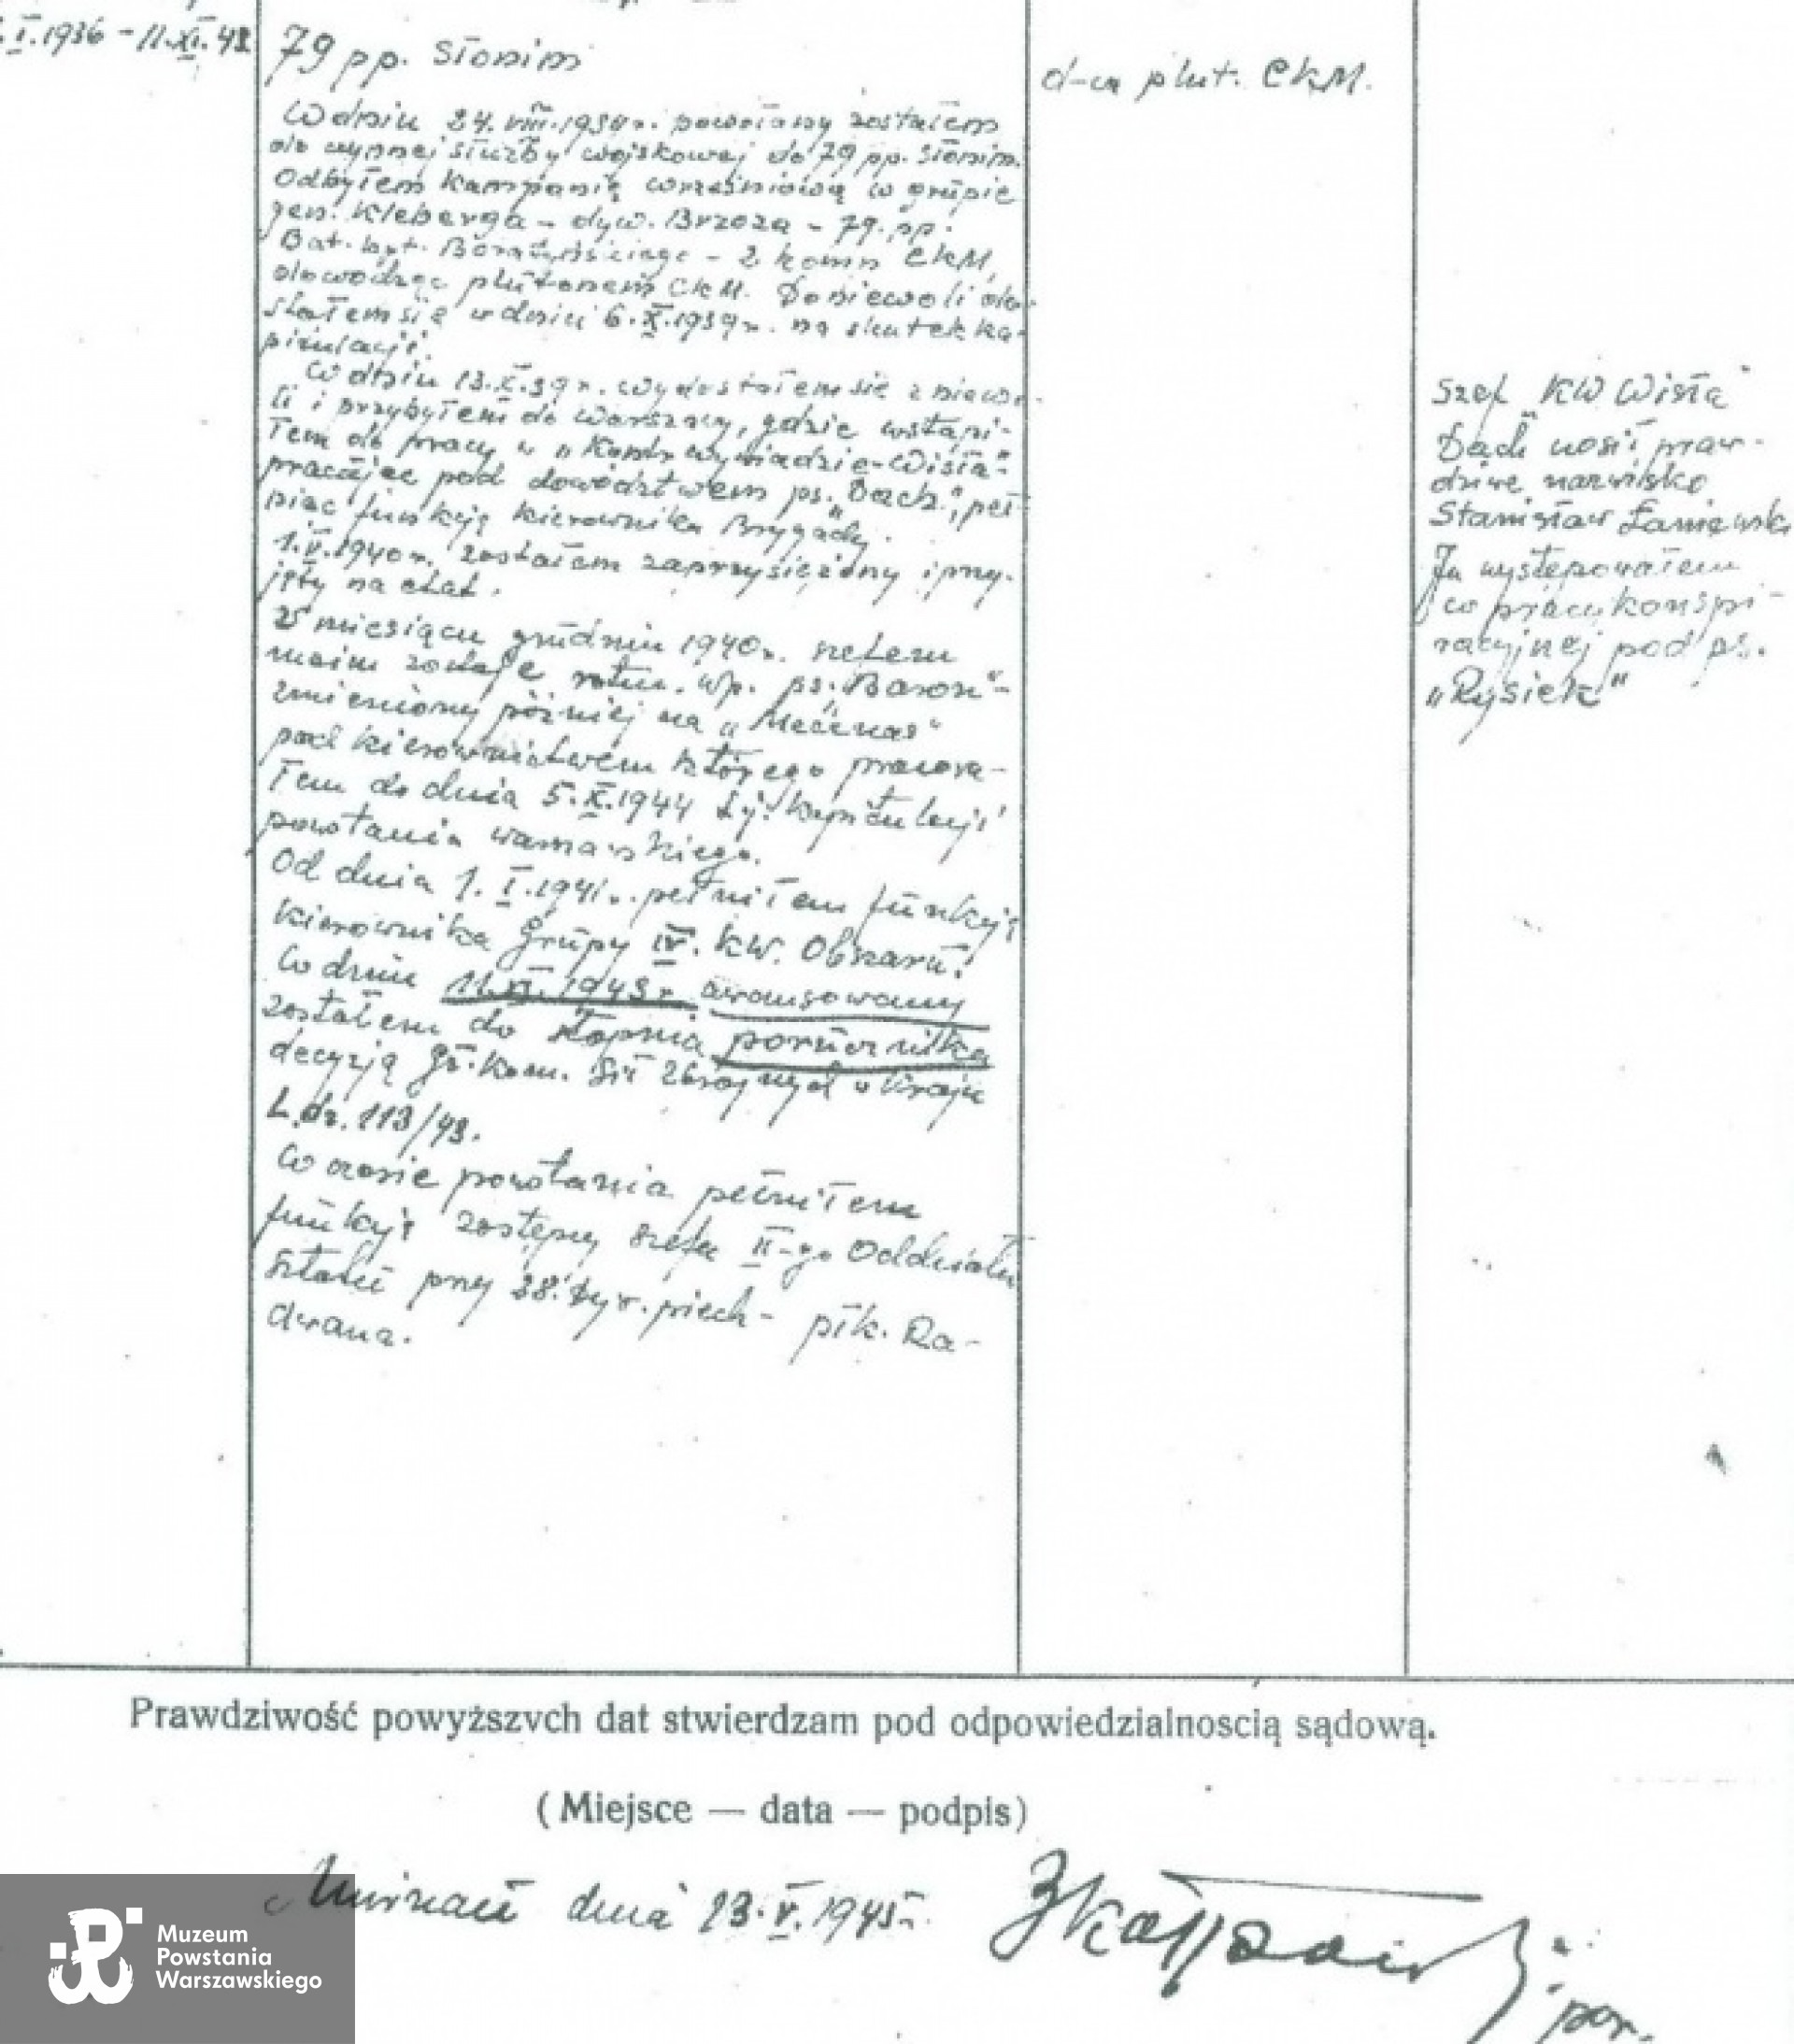 I.1936 - 11.XI.43
79 pp. Słonim
d-ca plut. CKM.
W dniu 24.VIII.1939r. powołany zostałem
do czynnej służby wojskowej do 79 pp. Słonim.
Odbyłem kampanię wrześniową w grupie
gen. Kleberga - dyw. Brzoza - 79. pp.
Bat. kpt. - 2 komp CKM,
dowodząc plutonem CKM. Do niewoli do-
stałem się w dniu 6.X.1939r. na skutek ka-
pitulacji.
W dniu 13.X.39r. wydostałem się z niewo-
li i przybyłem do Warszawy, gdzie wstąpi-
łem do pracy w "Kontrwywiadzie-Wisła"
pracując pod dowództwem ps. "Dach", peł-
niąc funkcję kierownika Brygady.
1.V.1940r. zostałem zaprzysiężony i przy-
jęty na etat.
W miesiącu grudniu 1940r. szefem
moim zostaje rotm. ps. "Baron" -
zmieniony później na "Mecenas"
pod kierownictwem którego pracowa-
łem do dnia 5.X.1944 t.j. kapitulacji
powstania warszawskiego.
Od dnia 1.I.1941r. pełniłem funkcję
kierownika Grupy IV. KW. Obszaru.
W dniu 11.XI.1943r. awansowany
zostałem do stopnia porucznika
decyzją Gł. Kom. Sił Zbrojnych w Kraju
L.dz. 113/43.
W czasie powstania pełniłem
funkcję zastępcy szefa II-go Oddziału
Sztabu przy 28. Dyw. piech - płk. Ra-
dwana.
Szef KW Wisła
Dach nosił praw-
dziwe nazwisko
Stanisław Łaniewski
Ja występowałem
w pracy konspi-
racyjnej pod ps.
"Rysiek"
Prawdziwość powyższych dat stwierdzam pod odpowiedzialnoscią sądową.
(Miejsce — data — podpis)
dnia 23.V.1945r.
por.
Muzeum
Powstania
Warszawskiego